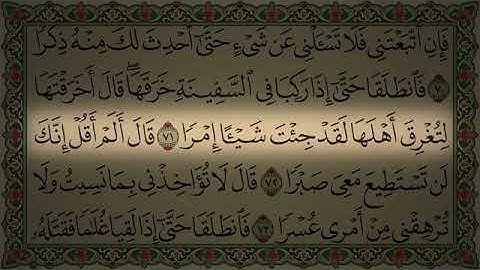 فَإِنِ ٱتَّبَعْتَنِى فَلَا تَسْـَٔلْنِى عَن شَىْءٍ حَتَّىٰٓ أُحْدِثَ لَكَ مِنْهُ ذِكْرًا
٧٠ فَٱنطَلَقَا حَتَّىٰٓ إِذَا رَكِبَا فِى ٱلسَّفِينَةِ خَرَقَهَا ۖ قَالَ أَخَرَقْتَهَا
لِتُغْرِقَ أَهْلَهَا لَقَدْ جِئْتَ شَيْـًٔا إِمْرًا ٧١ قَالَ أَلَمْ أَقُلْ إِنَّكَ
لَن تَسْتَطِيعَ مَعِىَ صَبْرًا ٧٢ قَالَ لَا تُؤَاخِذْنِى بِمَا نَسِيتُ وَلَا
تُرْهِقْنِى مِنْ أَمْرِى عُسْرًا ٧٣ فَٱنطَلَقَا حَتَّىٰٓ إِذَا لَقِيَا غُلَـٰمًا فَقَتَلَهُۥ